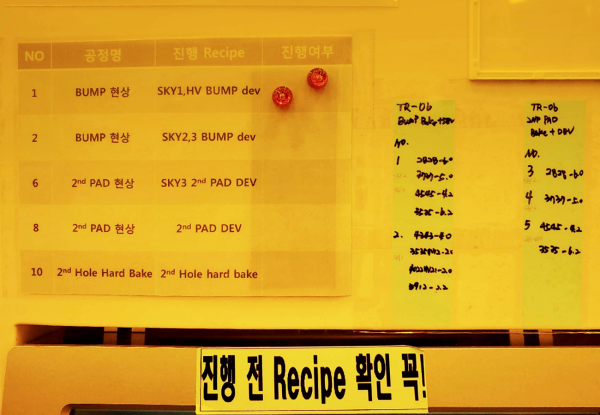 NO 공정명 진행 Recipe 진행여부
1 BUMP 현상 SKY1,HV BUMP dev
2 BUMP 현상 SKY2,3 BUMP dev
6 2nd PAD 현상 SKY3 2nd PAD DEV
8 2nd PAD 현상 2nd PAD DEV
10 2nd Hole Hard Bake 2nd Hole hard bake
TR-06
Bump Bake+DEV
NO.
1 2828-6.0
3737-5.0
4545-4.2
3535-6.2
2. 4343-4.0
TR-06
2nd PAD
Bake + DEV
NO.
3 2828-6.0
4 3737-5.0
5 4545-4.2
3535-6.2
진행 전 Recipe 확인 꼭!